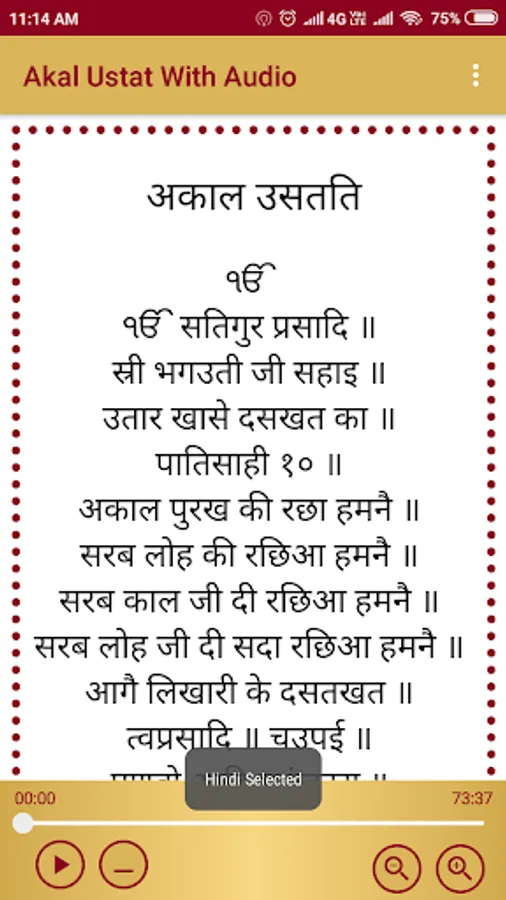 11:14 AM 4G VoLTE 75%
Akal Ustat With Audio
अकाल उसतति
ੴ
ੴ सतिगुर प्रसादि ॥
स्री भगउती जी सहाइ ॥
उतार खासे दसखत का ॥
पातिसाही १० ॥
अकाल पुरख की रछा हमनै ॥
सरब लोह की रछिआ हमनै ॥
सरब काल जी दी रछिआ हमनै ॥
सरब लोह जी दी सदा रछिआ हमनै ॥
आगै लिखारी के दसतखत ॥
त्वप्रसादि ॥ चउपई ॥
Hindi Selected
00:00 73:37